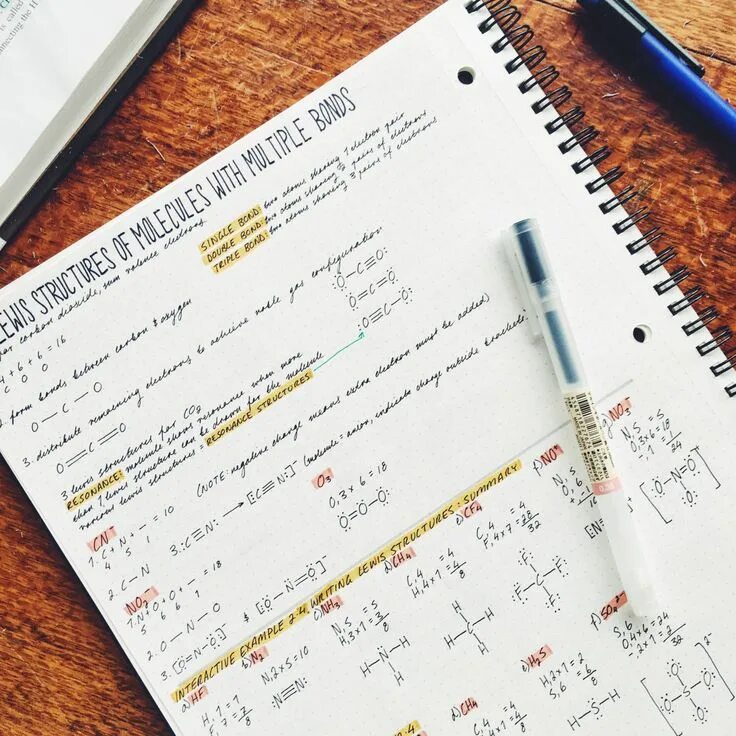 is called
connecting the H
LEWIS STRUCTURES OF MOLECULES WITH MULTIPLE BONDS
for carbon dioxide, sum valence electrons.
4 + 6 + 6 = 16
C O O
SINGLE BOND: two atoms sharing 1 electron pair
DOUBLE BOND: two atoms sharing 2 pairs of electrons
TRIPLE BOND: two atoms sharing 3 pairs of electrons
2. form bonds between carbon & oxygen
O—C—O
3. distribute remaining electrons to achieve noble gas configuration
O=C=O
:O—C≡O:
O=C=O
:O≡C—O:
3 lewis structures for CO2
RESONANCE: molecule shows resonance when more
than 1 lewis structure can be drawn for the molecule
various lewis structures = RESONANCE STRUCTURES
(NOTE: negative charge means extra electron must be added)
CN⁻
1. C + N + – = 10
4 5 1
2. C—N
3. :C≡N: → [:C≡N:]⁻ (molecule = anion, indicate charge outside brackets)
O3
O, 3×6 = 18
O=O=O
NO2⁻
1. N + O + O + – = 18
5 6 6 1
2. O—N—O
3. [O=N—O:]⁻ & [:O—N=O]⁻
INTERACTIVE EXAMPLE 2.4 WRITING LEWIS STRUCTURES: SUMMARY
a) HF
H, 1 = 1
F, 7 = 7
8
b) N2
N, 2×5 = 10
:N≡N:
c) NH3
N, 5 = 5
H, 3×1 = 3
8
H—N—H
H
d) CH4
C, 4 = 4
H, 4×1 = 4
8
H
H—C—H
H
e) CF4
C, 4 = 4
F, 4×7 = 28
32
:F:
:F—C—F:
:F:
f) NO⁺
N, 5
O, 6
+, -1
10
[:N
g) NO3⁻
N, 5 = 5
O, 3×6 = 18
-, 1
24
[:O—N=O
:O:]⁻
d) CH4
C, 4 = 4
H, 4×1 = 4
8
e) H2S
H, 2×1 = 2
S, 6 = 6
8
H—S—H
f) SO4²⁻
S, 6
O, 4×6 = 24
-, 2×1 = 2
32
[:O:
:O—S—O:
:O:]²⁻